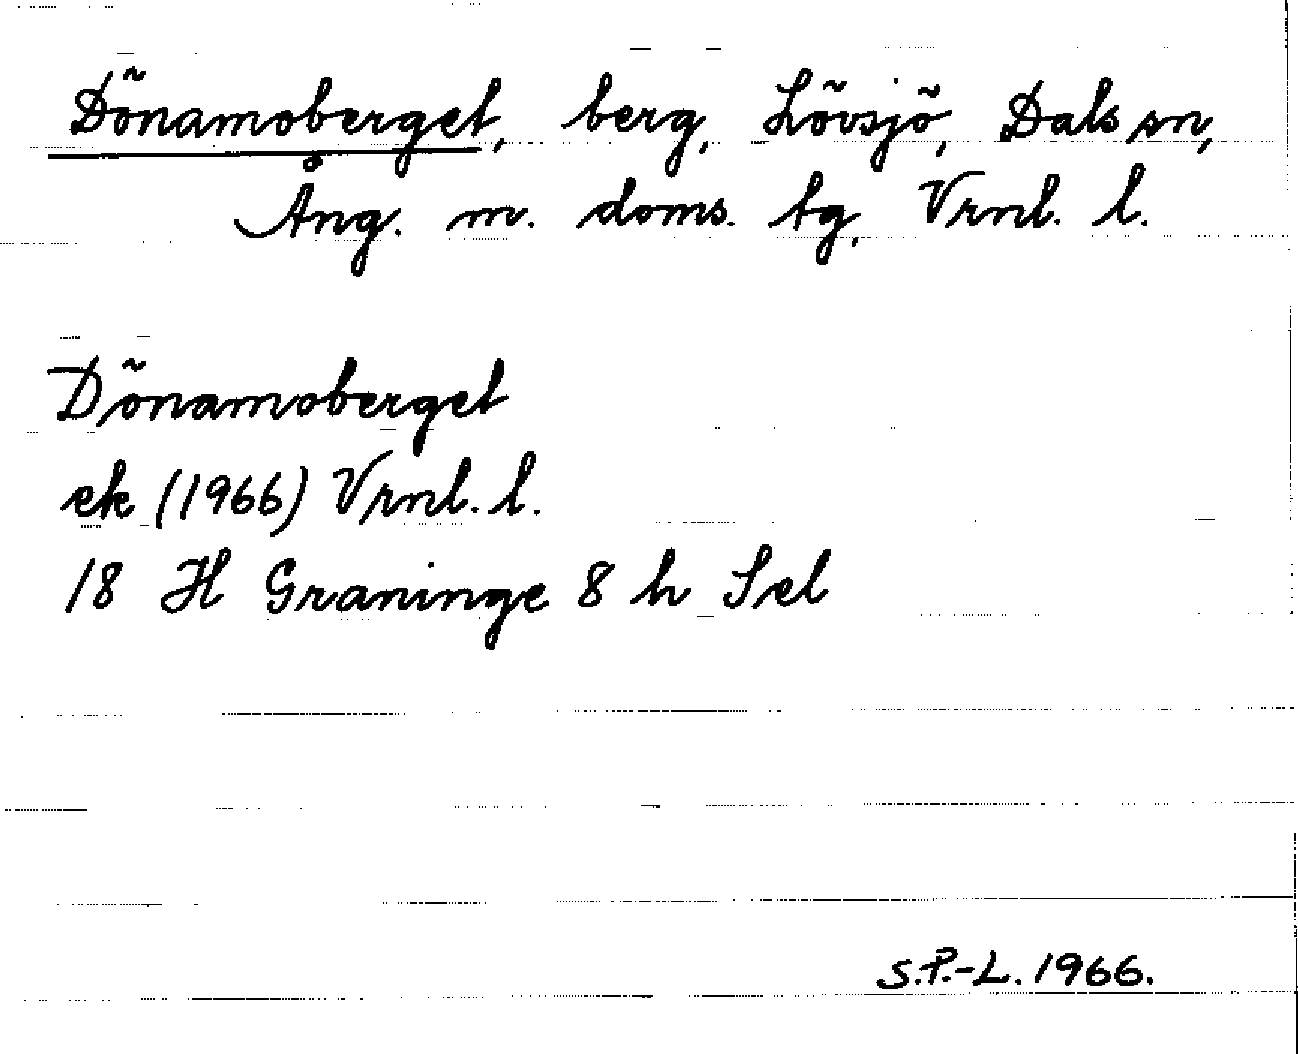 Dönamoberget, berg, Lövsjö, Dals sn,
Ång. m. doms. tg, Vrnl. l.
Dönamoberget
ek (1966) Vrnl. l.
18 H Graninge 8 h Sel
S.P.-L. 1966.